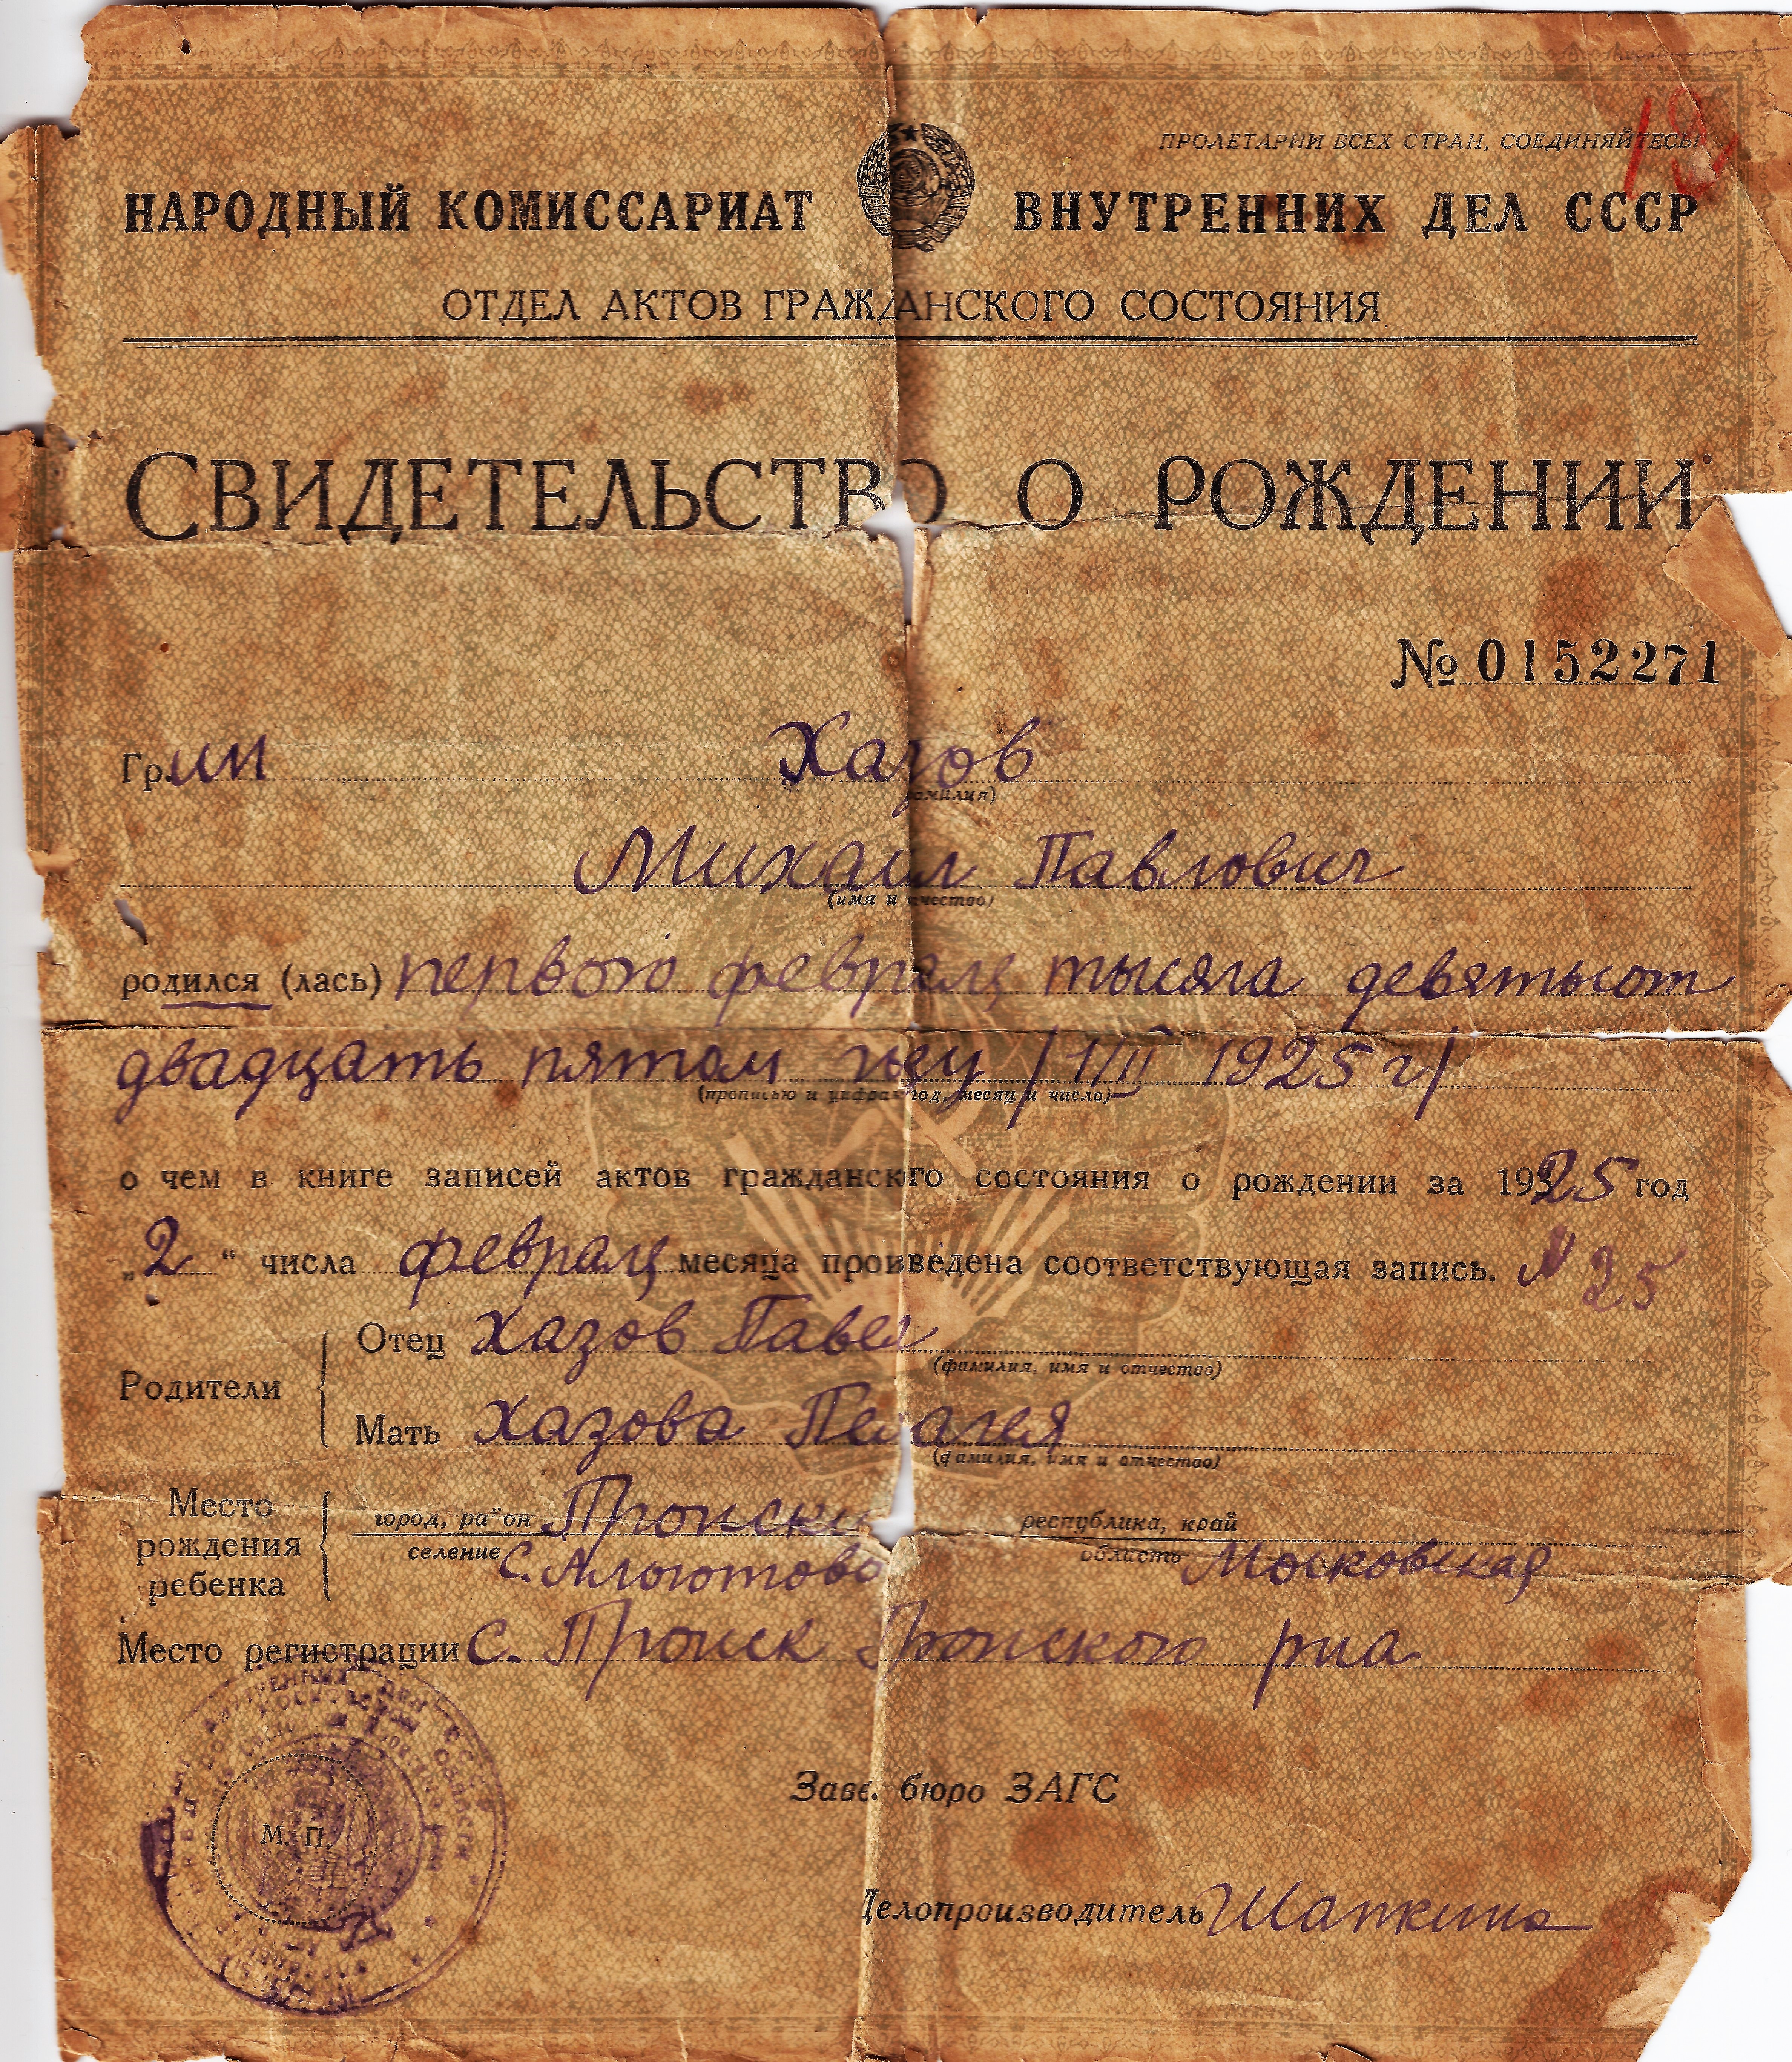 ПРОЛЕТАРИИ ВСЕХ СТРАН, СОЕДИНЯЙТЕСЬ!
НАРОДНЫЙ КОМИССАРИАТ ВНУТРЕННИХ ДЕЛ СССР
ОТДЕЛ АКТОВ ГРАЖДАНСКОГО СОСТОЯНИЯ
СВИДЕТЕЛЬСТВО О РОЖДЕНИИ
№ 0152271
Гр. ин Хазов
(фамилия)
Михаил Павлович
(имя и отчество)
родился (лась) первого февраля тысяча девятьсот
двадцать пятом году /1/II 1925 г/
(прописью и цифрами год, месяц и число)
о чем в книге записей актов гражданского состояния о рождении за 1925 год
„2“ числа февраля месяца произведена соответствующая запись. N 25
Родители
Отец Хазов Павел
(фамилия, имя и отчество)
Мать Хазова Пелагея
(фамилия, имя и отчество)
Место рождения ребенка
город, район Пронск
селение с.
республика, край
область Московская
Место регистрации с. Пронск Пронского р-на
М. П.
Зав. бюро ЗАГС
Делопроизводитель Шапкина